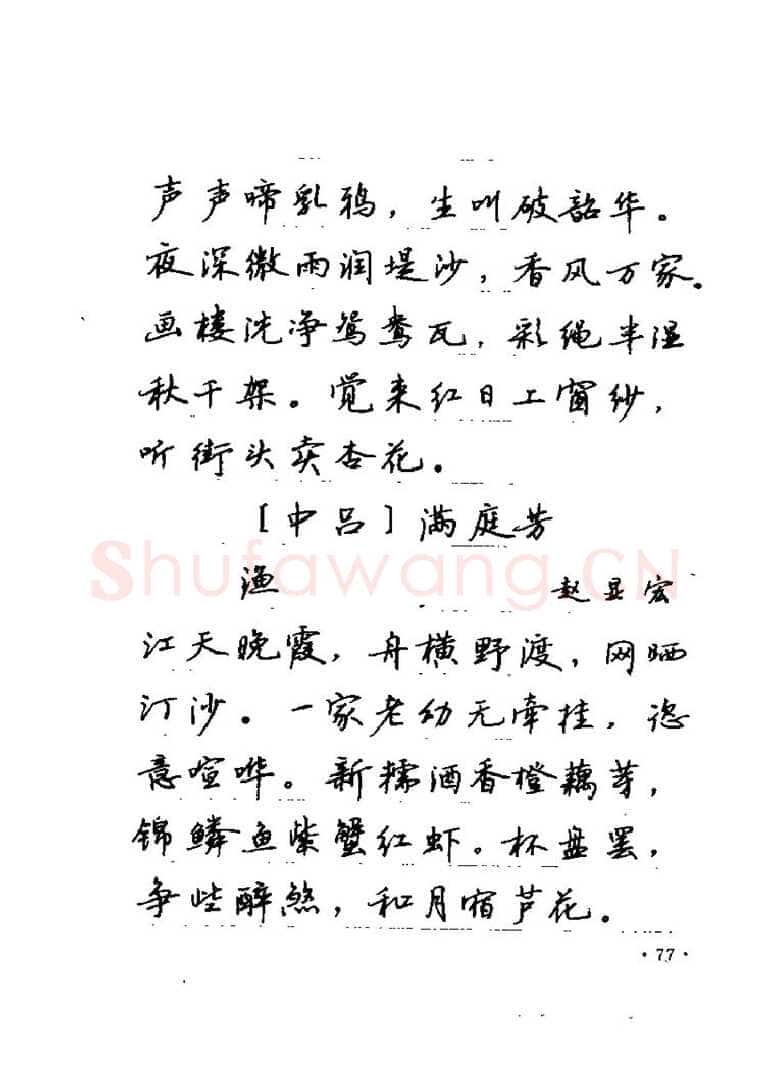 声声啼乳鸦，生叫破韶华。
夜深微雨润堤沙，香风万家。
画楼洗净鸳鸯瓦，彩绳半湿
秋千架。觉来红日上窗纱，
听街头卖杏花。
［中吕］满庭芳
渔 赵显宏
江天晚霞，舟横野渡，网晒
汀沙。一家老幼无牵挂，恣
意喧哗。新糯酒香橙藕芽，
锦鳞鱼紫蟹红虾。杯盘罢，
争些醉煞，和月宿芦花。
·77·
Shufawang.CN